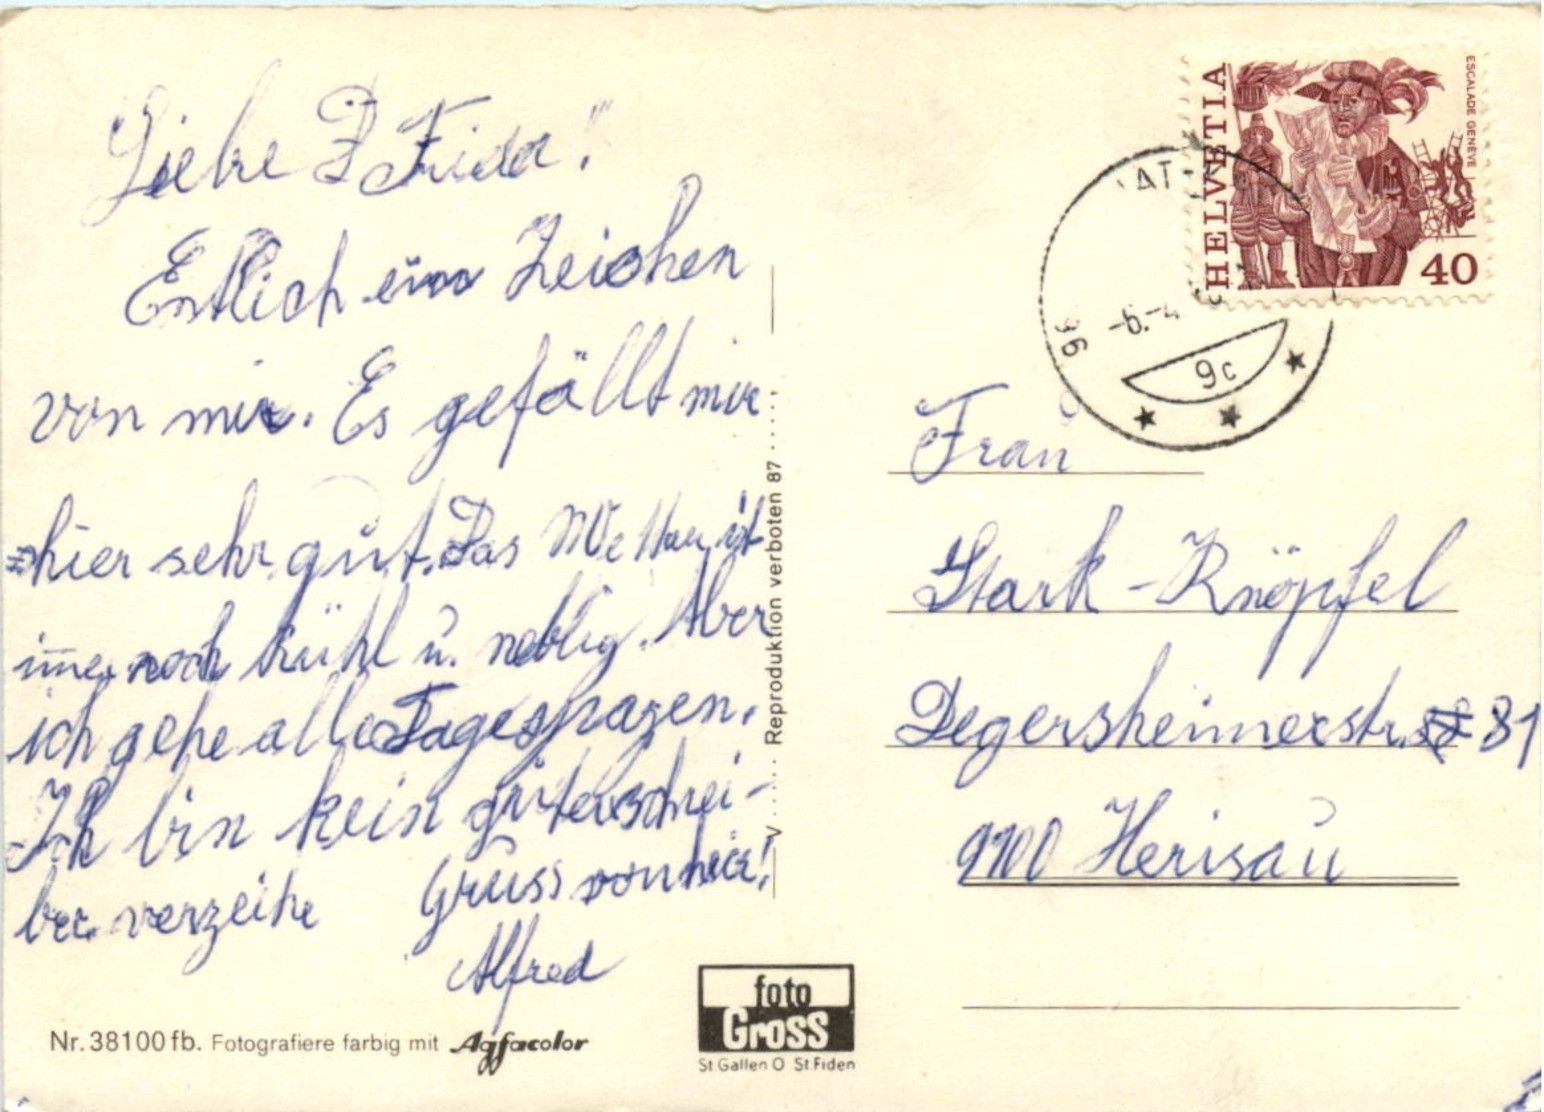 Liebe Frida!
Entlich ein Zeichen
von mir. Es gefällt mir
hier sehr gut. Das Wetter ist
immer noch kühl u. neblig. Aber
ich gehe alle Tage spazen.
Ich bin kein guterschrei-
ber. verzeihe Gruss von hier!
Alfred
Nr. 38100 fb. Fotografiere farbig mit Agfacolor
V ..... Reproduktion verboten 87 .....
foto
Gross
St.Gallen O St.Fiden
HELVETIA
ESCALADE GENÈVE
40
96
-6.-4
9c
Frau
Stark-Knöpfel
Degersheimerstr. 81
9100 Herisau